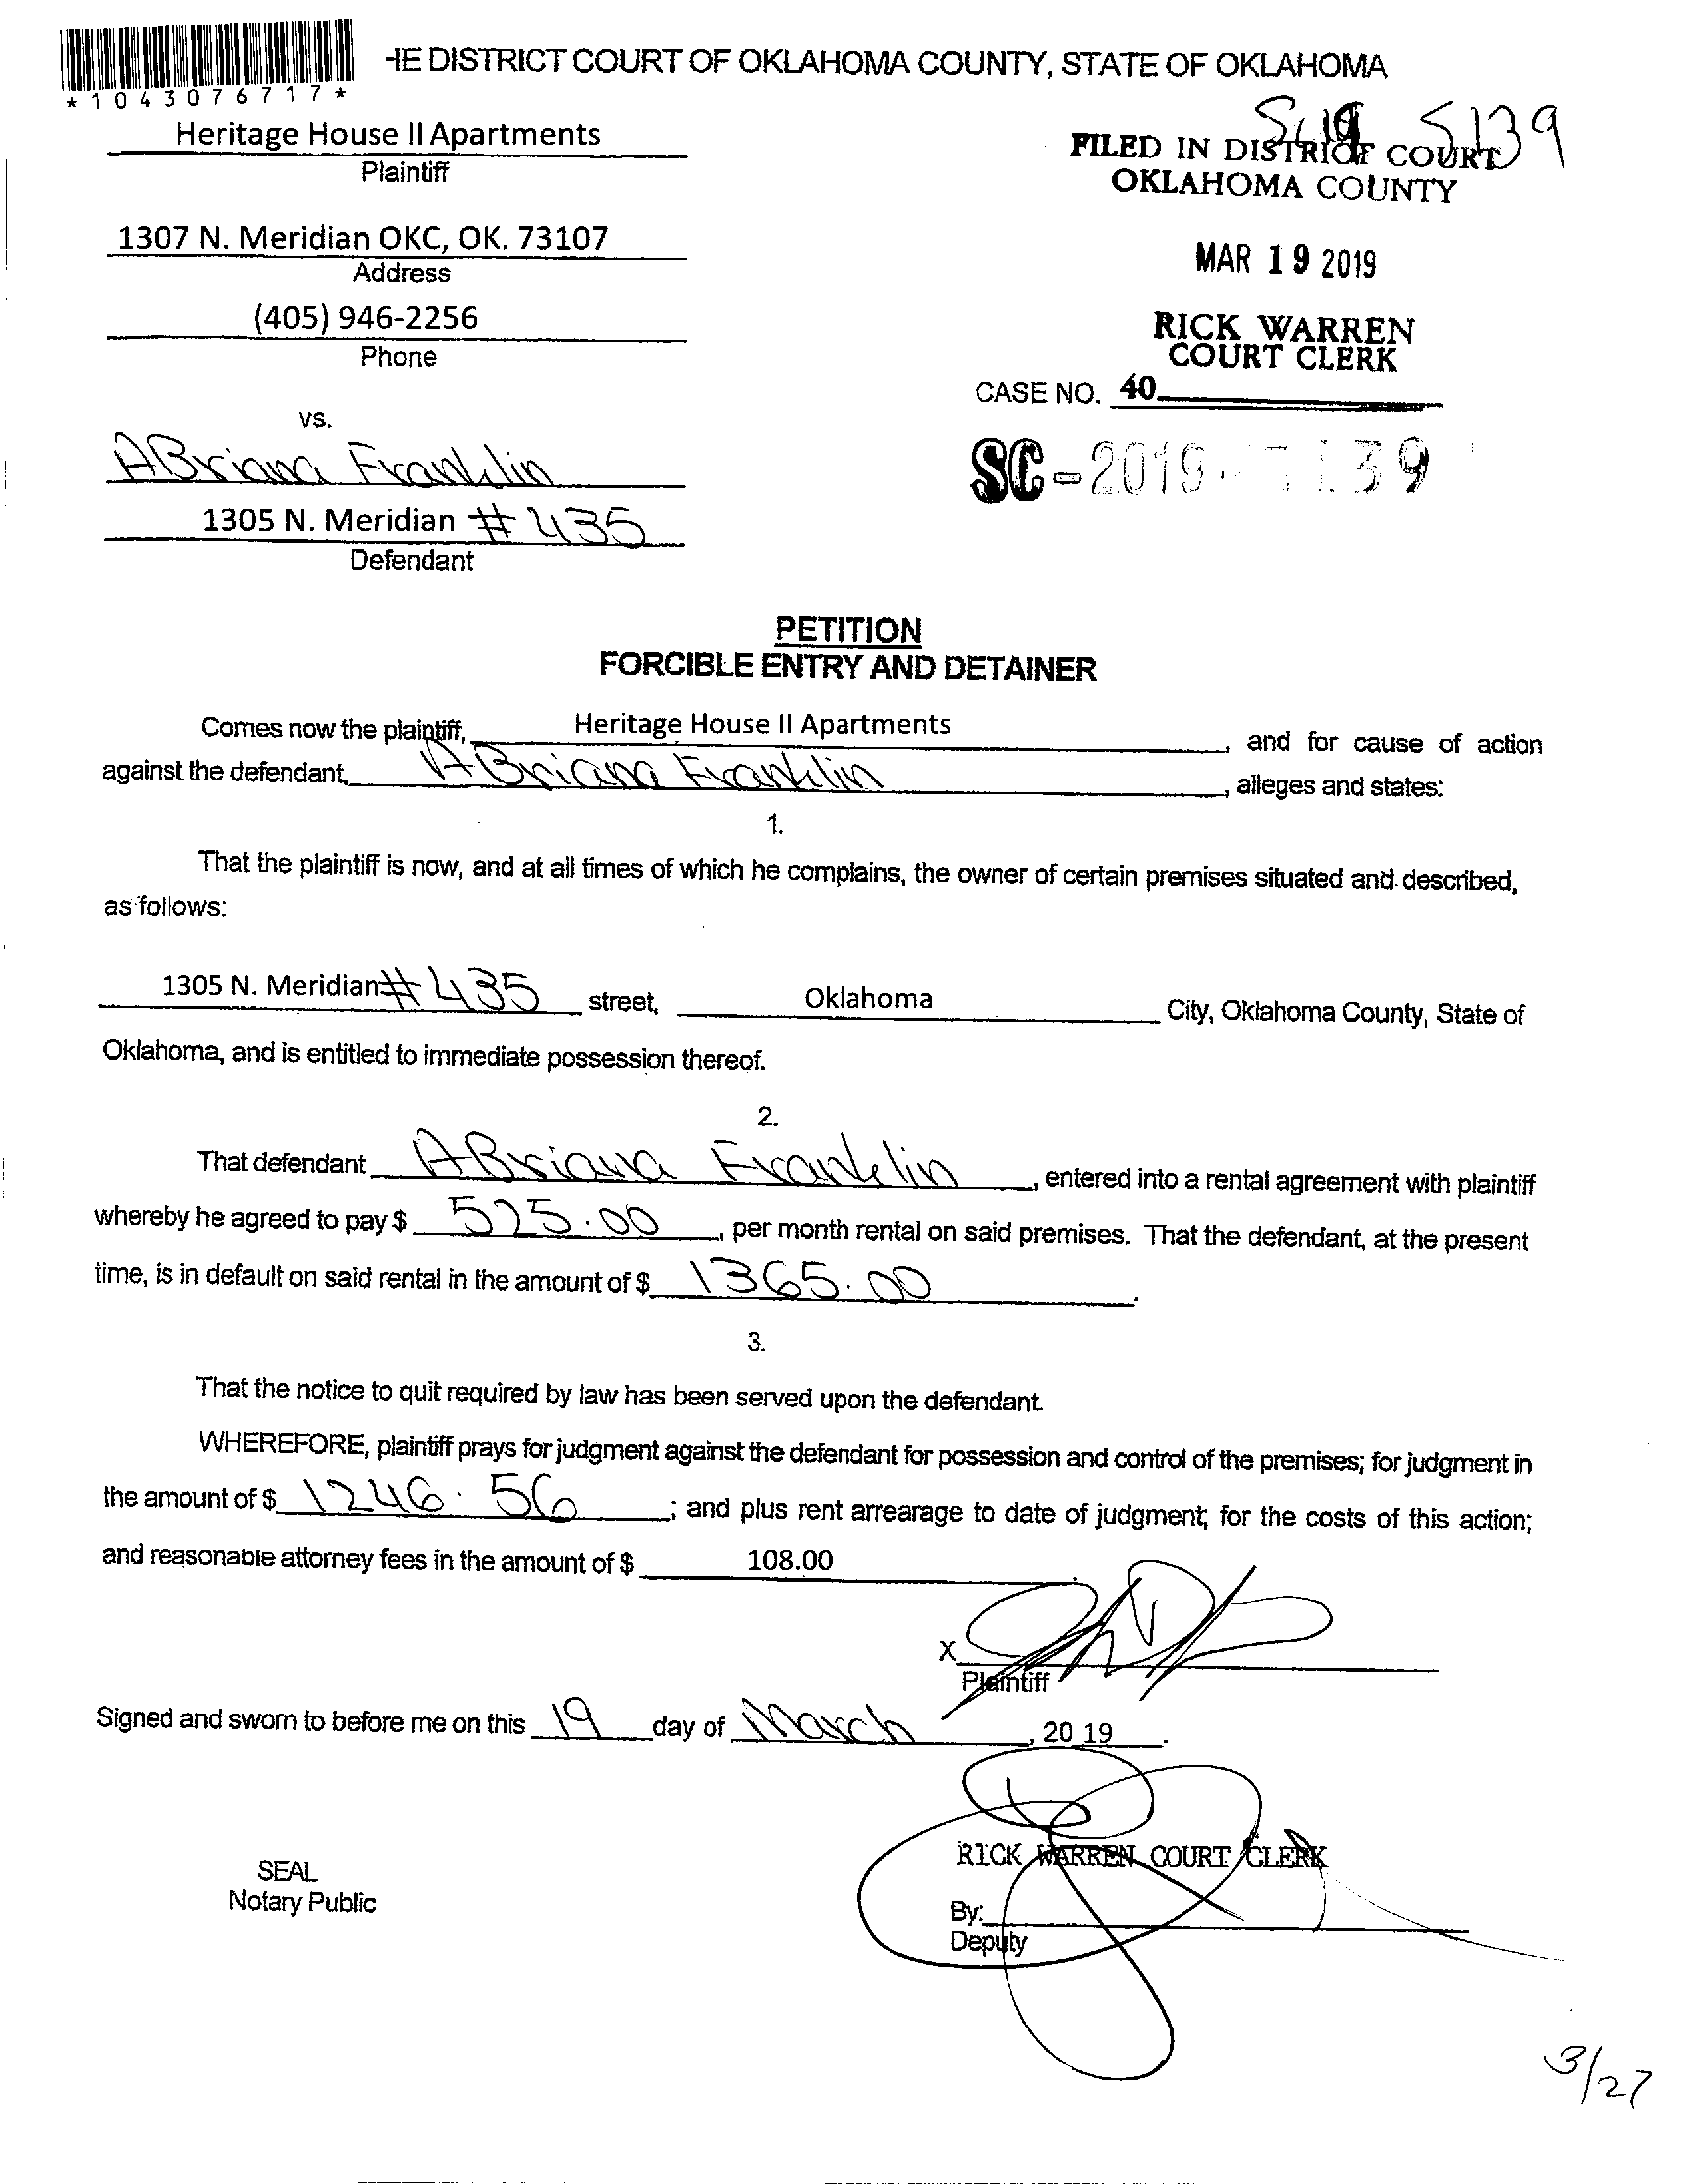 *1043076717*
HE DISTRICT COURT OF OKLAHOMA COUNTY, STATE OF OKLAHOMA
Heritage House II Apartments
Plaintiff
1307 N. Meridian OKC, OK. 73107
Address
(405) 946-2256
Phone
vs.
ABriana Franklin
1305 N. Meridian #435
Defendant
5139
FILED IN DISTRICT COURT
OKLAHOMA COUNTY
MAR 19 2019
RICK WARREN
COURT CLERK
CASE NO. 40
SC-2019-
PETITION
FORCIBLE ENTRY AND DETAINER
Comes now the plaintiff, Heritage House II Apartments, and for cause of action
against the defendant, ABriana Franklin, alleges and states:
1.
That the plaintiff is now, and at all times of which he complains, the owner of certain premises situated and described,
as follows:
1305 N. Meridian #435 street, Oklahoma City, Oklahoma County, State of
Oklahoma, and is entitled to immediate possession thereof.
2.
That defendant ABriana Franklin, entered into a rental agreement with plaintiff
whereby he agreed to pay $ 525.00, per month rental on said premises. That the defendant, at the present
time, is in default on said rental in the amount of $ 1365.00.
3.
That the notice to quit required by law has been served upon the defendant.
WHEREFORE, plaintiff prays for judgment against the defendant for possession and control of the premises; for judgment in
the amount of $ 1246.56; and plus rent arrearage to date of judgment; for the costs of this action;
and reasonable attorney fees in the amount of $ 108.00
X
Plaintiff
Signed and sworn to before me on this 19 day of March, 20 19.
SEAL
Notary Public
RICK WARREN COURT CLERK
By:
Deputy
3/27